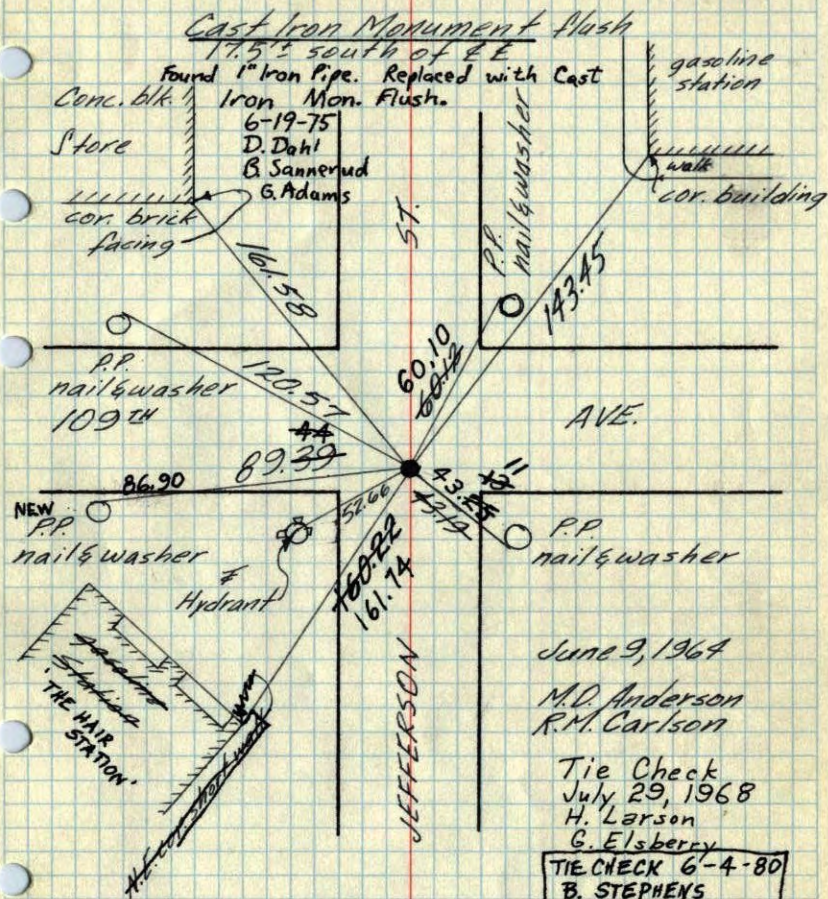 Cast Iron Monument flush
17.5'± south of ℄ E
Found 1" Iron Pipe. Replaced with Cast
Iron Mon. Flush.
6-19-75
D. Dahl
B. Sannerud
G. Adams
Conc. blk.
Store
cor. brick
facing
gasoline
station
walk
cor. building
P.P.
nail & washer
ST.
161.58
143.45
60.10
60.12
P.P.
nail & washer
109TH
120.57
AVE.
44
89.39
86.90
NEW
P.P.
nail & washer
52.66
℄
Hydrant
11
12
43.25
43.12
P.P.
nail & washer
160.22
161.74
gasoline
station
"THE HAIR
STATION"
N.E. cor. short wall
JEFFERSON
June 9, 1964
M.D. Anderson
R.M. Carlson
Tie Check
July 29, 1968
H. Larson
G. Elsberry
TIE CHECK 6-4-80
B. STEPHENS